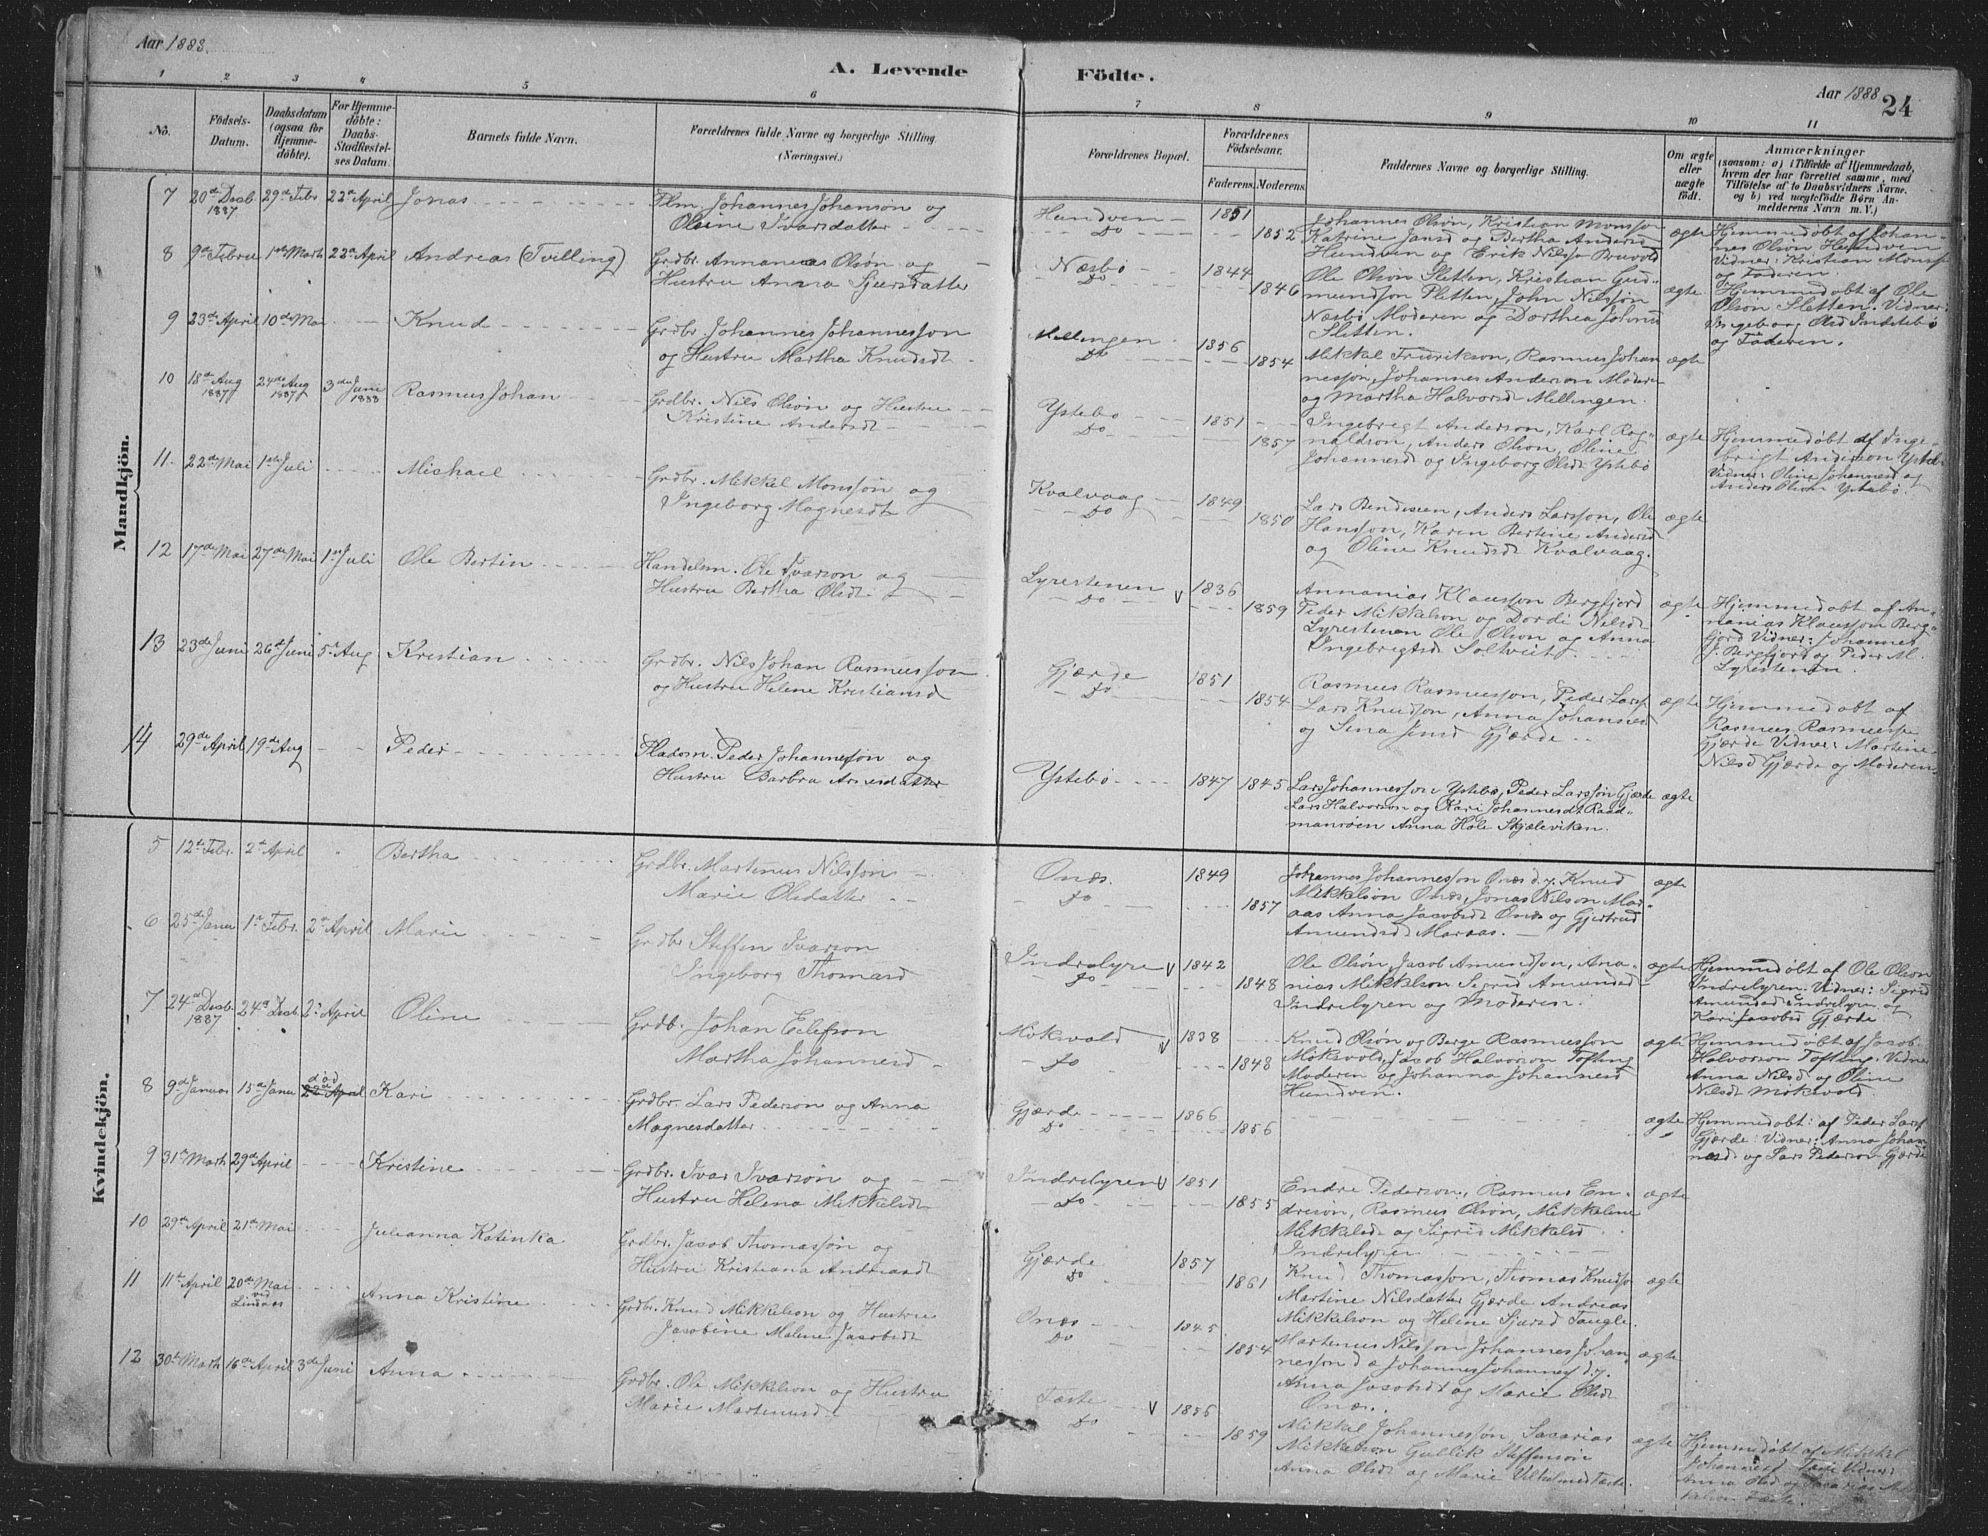 Aar 1888.
A. Levende Födte.
Aar 1888
24
1 2 3 4 5 6 7 8 9 10 11
No.
Födsels-
Datum.
Daabsdatum
(ogsaa for
Hjemme-
döbte).
For Hjemme-
döbte:
Daabs-
Stadfæstel-
ses Datum.
Barnets fulde Navn.
Forældrenes fulde Navne og borgerlige Stilling
(Næringsvei.)
Forældrenes Bopæl.
Forældrenes
Födselsaar.
Faderens. Moderens.
Faddernes Navne og borgerlige Stilling.
Om ægte
eller
uægte
født.
Anmærkninger
(saasom: a) i Tilfælde af Hjemmedaab,
hvem der har forrettet samme, med
Tilföielse af to Daabsvidners Navne,
og b) ved uægtefödte Börn An-
melderens Navn m. V.)
Mandkjön.
7 20de Decb 1887 29de Febr 22de April Jonas
Johannes Johanson og
Oline Ivarsdatter
Hundven 1851
Do 1852
Johannes Olson, Kristian Monsson
Katrine Jansd og Bertha Andersd
Hundven og Erik Nilss
ægte
Hjemmedøbt af Johan-
nes Olson Hundven
Vidner: Kristian Monss
og Faderen.
8 9de Febru 1ste Marth 22de April Andreas (Tvilling)
Grdbr. Annanias Olsøn og
Hustru Anna Sjursdatter
Næsbø 1844
Do 1846
Ole Olson Sletten, Kristian Gud-
mundson Sletten, John Nilssøn
Næsbø Moderen og Dorthea
Sletten.
ægte
Hjemmedøbt af Ole
Olsøn Sletten. Vidner:
Ingeborg Olsd
og Faderen.
9 23de April 10de Mai Knud
Grdbr Johannes Johannesson
og Hustru Martha Knudsdt
Mellingen 1856
Do 1854
Mikkel Fredrikson, Rasmus Johan
nesson, Johannes Anderson Moderen
og Martha Halvorsd Mellingen.
ægte
10 18de Aug 1887 24de Aug 1887 3de Juni 1888 Rasmus Johan
Grdbr. Nils Olsøn og Hustru
Kristine Andersdt
Ystebø 1851
Do 1857
Ingebrigt Anderson, Karl Rag-
naldson, Anders Olson, Oline
Johannesd og Ingeborg Olsdt Ystebø
ægte
Hjemmedøbt af Inge-
brigt Anderson Ystebø
Vidner: Oline Johannesd og
Anders Olson Ystebø.
11. 22de Mai 1ste Juli Michael
Grdbr. Mikkel Monsson og
Ingeborg Magnesdt
Kvalvaag 1849
Do 1850
Lars Anders Larsson, Ole
Hansson, Karen Bertine Andersd
og Oline Knudsdt Kvalvaag.
ægte
12 17de Mai 27de Mai 1ste Juli Ole Bertin
Handelsm. Ole Ivarson og
Hustru Bertha Olsdt.
Lyrestenen 1836
Do 1859
Annanias Klausson Bergfjord
Peder Mikkelson og Dordi Nilsd
Lyrestenen Ole Olson og Anna
Ingebrigtsd Soltveit
ægte
Hjemmedøbt af An-
nanias Klausson Berg-
fjord Vidner: Johannes
J. Bergfjord og Peder M.
Lyrestenen.
13 23de Juni 26de Juni 5te Aug Kristian
Grdbr. Nils Johan Rasmusson
og Hustru Helene Kristiansd
Gjærde 1851
Do 1854
Rasmus Rasmusson, Peder Larss
Lars Knudson, Anna Johannesd
og Sina Gjærde
ægte
Hjemmedøbt af
Rasmus Rasmusson
Gjærde Vidner: Martine
Nilsd Gjærde og Moderen.
14 29de April 19de Aug Peder
Pladsm. Peder Johannessøn og
Hustru Barbra Arnesdatter
Ystebø 1847 1845
Lars Johannesson Ystebø, Peder Larsson Gjærde
Lars Halvorson og Kari Johannesdt Raad-
mansøen Anna Hole Skjæleviken.
ægte
Kvindekjön.
5 12te Febr. 2de April Bertha
Grdbr. Martinus Nilsson
Marie Olsdatter
Onæs. 1849
Do 1857
Johannes Johannesson Onæs d.y. Knud
Mikkelson Onæs, Jonas Nilson Mar-
aas Anna Jacobsdt Onæs og Gjertrud
Amundsd Maraas.
ægte
6 25de Janu 1ste Febr. 2den April Marie
Grdbr Steffen Ivarson
Ingeborg Thomasd
Indrelyre 1842
Do 1848
Ole Olson, Jacob Amundson, Ana-
nias Mikkelson Sigrid Amundsd
Indrelyren og Moderen.
ægte
Hjemmedøbt af Ole Olson
Indrelyren. Vidner: Sigrid
Amundsd Indrelyren og
Kari Jacobsd Gjærde.
7 24de Decb 1887 24de Decb 2de April Oline
Grdb. Johan Eelefson
Martha Johannesd
Mokvold 1838
Do 1848
Knud Olson og Berge Rasmusson
Mokvold, Jacob Halvorson Tofting
Moderen og Johanna Johannesd
Hundven.
ægte
Hjemmedøbt af Jacob
Halvorson Tofting. Vidner
Anna Nilsd og Oline
Nilsd Mokvold
8 9de Januar 15de Janu død 22de April Kari
Grdbr. Lars Pederson og Anna
Magnesdatter
Gjærde 1866
Do 1856
ægte
Hjemmedøbt: af Peder Larss
Gjærde: Vidner: Anna Johan
nesd og Lars Pederson Gjærde
9 31te Marth 29de April Kristine
Grdbr. Ivar Ivarson og
Hustru Helena Mikkelsdt
Indrelyren 1851
Do 1855
Endre Pederson, Rasmus En-
dreson, Rasmus Olson, Mikkeline
Mikkelsd og Sigrid Mikkelsd
Indrelyren
ægte
10 29de April 21de Mai Julianna Katinka
Grdbr. Jacob Thomasson og
Hustru Kristiana Andreasdt
Gjærde 1857
Do 1861
Knud Thomasson, Thomas Knudss
Martine Nilsdatter Gjærde Andreas
Mikkelson og Helene Sjursd Tangle.
ægte
11 11te April 20de Mai ved Lindaas Anna Kristine
Grdbr. Knud Mikkelson og Hustru
Jacobine Malene Jacobsdt
Onæs 1845
Do 1854
Martinus Nilsson, Johannes Johan-
nesson d æ Johannes Johannes d.y.
Anna Jacobsdt og Marie Olsdt
Onæs.
ægte
12 30te Marth 16de April 3de Juni Anna
Grdbr. Ole Mikkelson og Hustru
Marie Martinusd
Fæste 1856
Do 1859
Mikkel Johannesson, Sacarias
Mikkelson Gullik Steffenson
Anna Olsdt og Marie Vilhelmsd Fæste.
ægte
Hjemmedøbt af Mikkel
Johanness Fæste Vidner:
Anna Olsd og Sacarias Mik-
kelson Fæste.